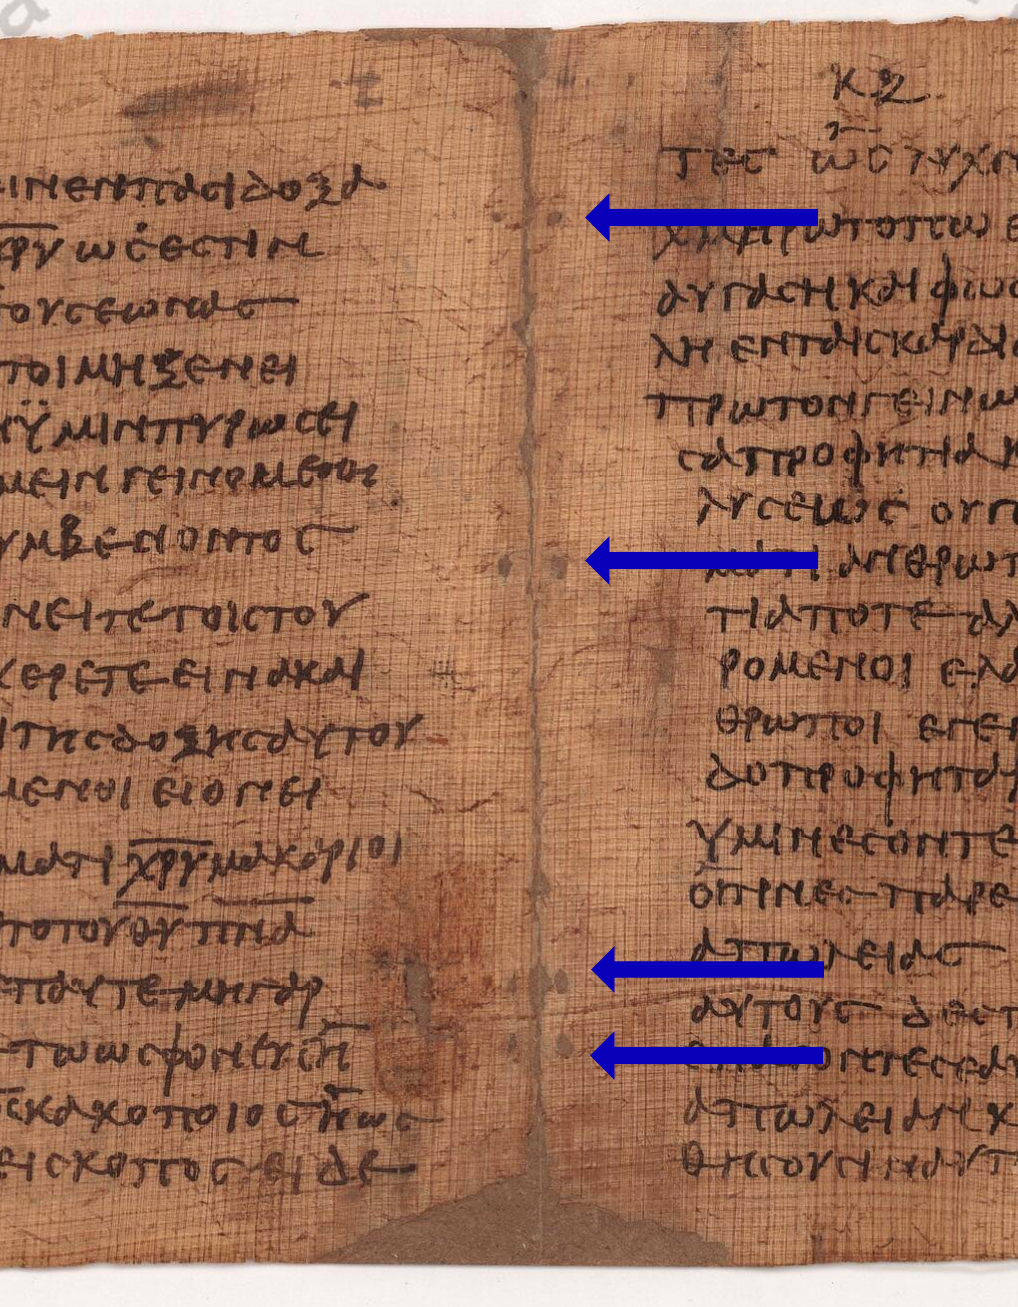 ινενπασιδοξα
ρυ ωεστιν
τουσεωνας
τοιμηξενει
νϋμινπυρωσει
μεινγεινομενης
υμβενοντος
νειτετοιςτου
χερετεεινακαι
ιτηςδοξηςαυτου
μενοι ειονει
ματιχρ̅υ̅μακαριοι
τοτουθ̅υ̅π̅ν̅α̅
παυτεμηγαρ
τωωςφονευςη
ςκακοποιοςηως
εισκοποςειδε
κζ
τες ως λυχν
χμηρωτοπω ε
αυγασηκαιφως
λη ενταιςκαρδι
πρωτονγεινω
σαπροφητια
λυσεως ουγ
ματι ανθρωπ
τιαποτε αλ
ρομενοι ελα
θρωποι εγεν
δοπροφητα
υμινεσοντε
οιτινεςπαρε
απωλειας
αυτους δεσ
οντεςεαυ
απωλειαν κ
θησουσιναυτ